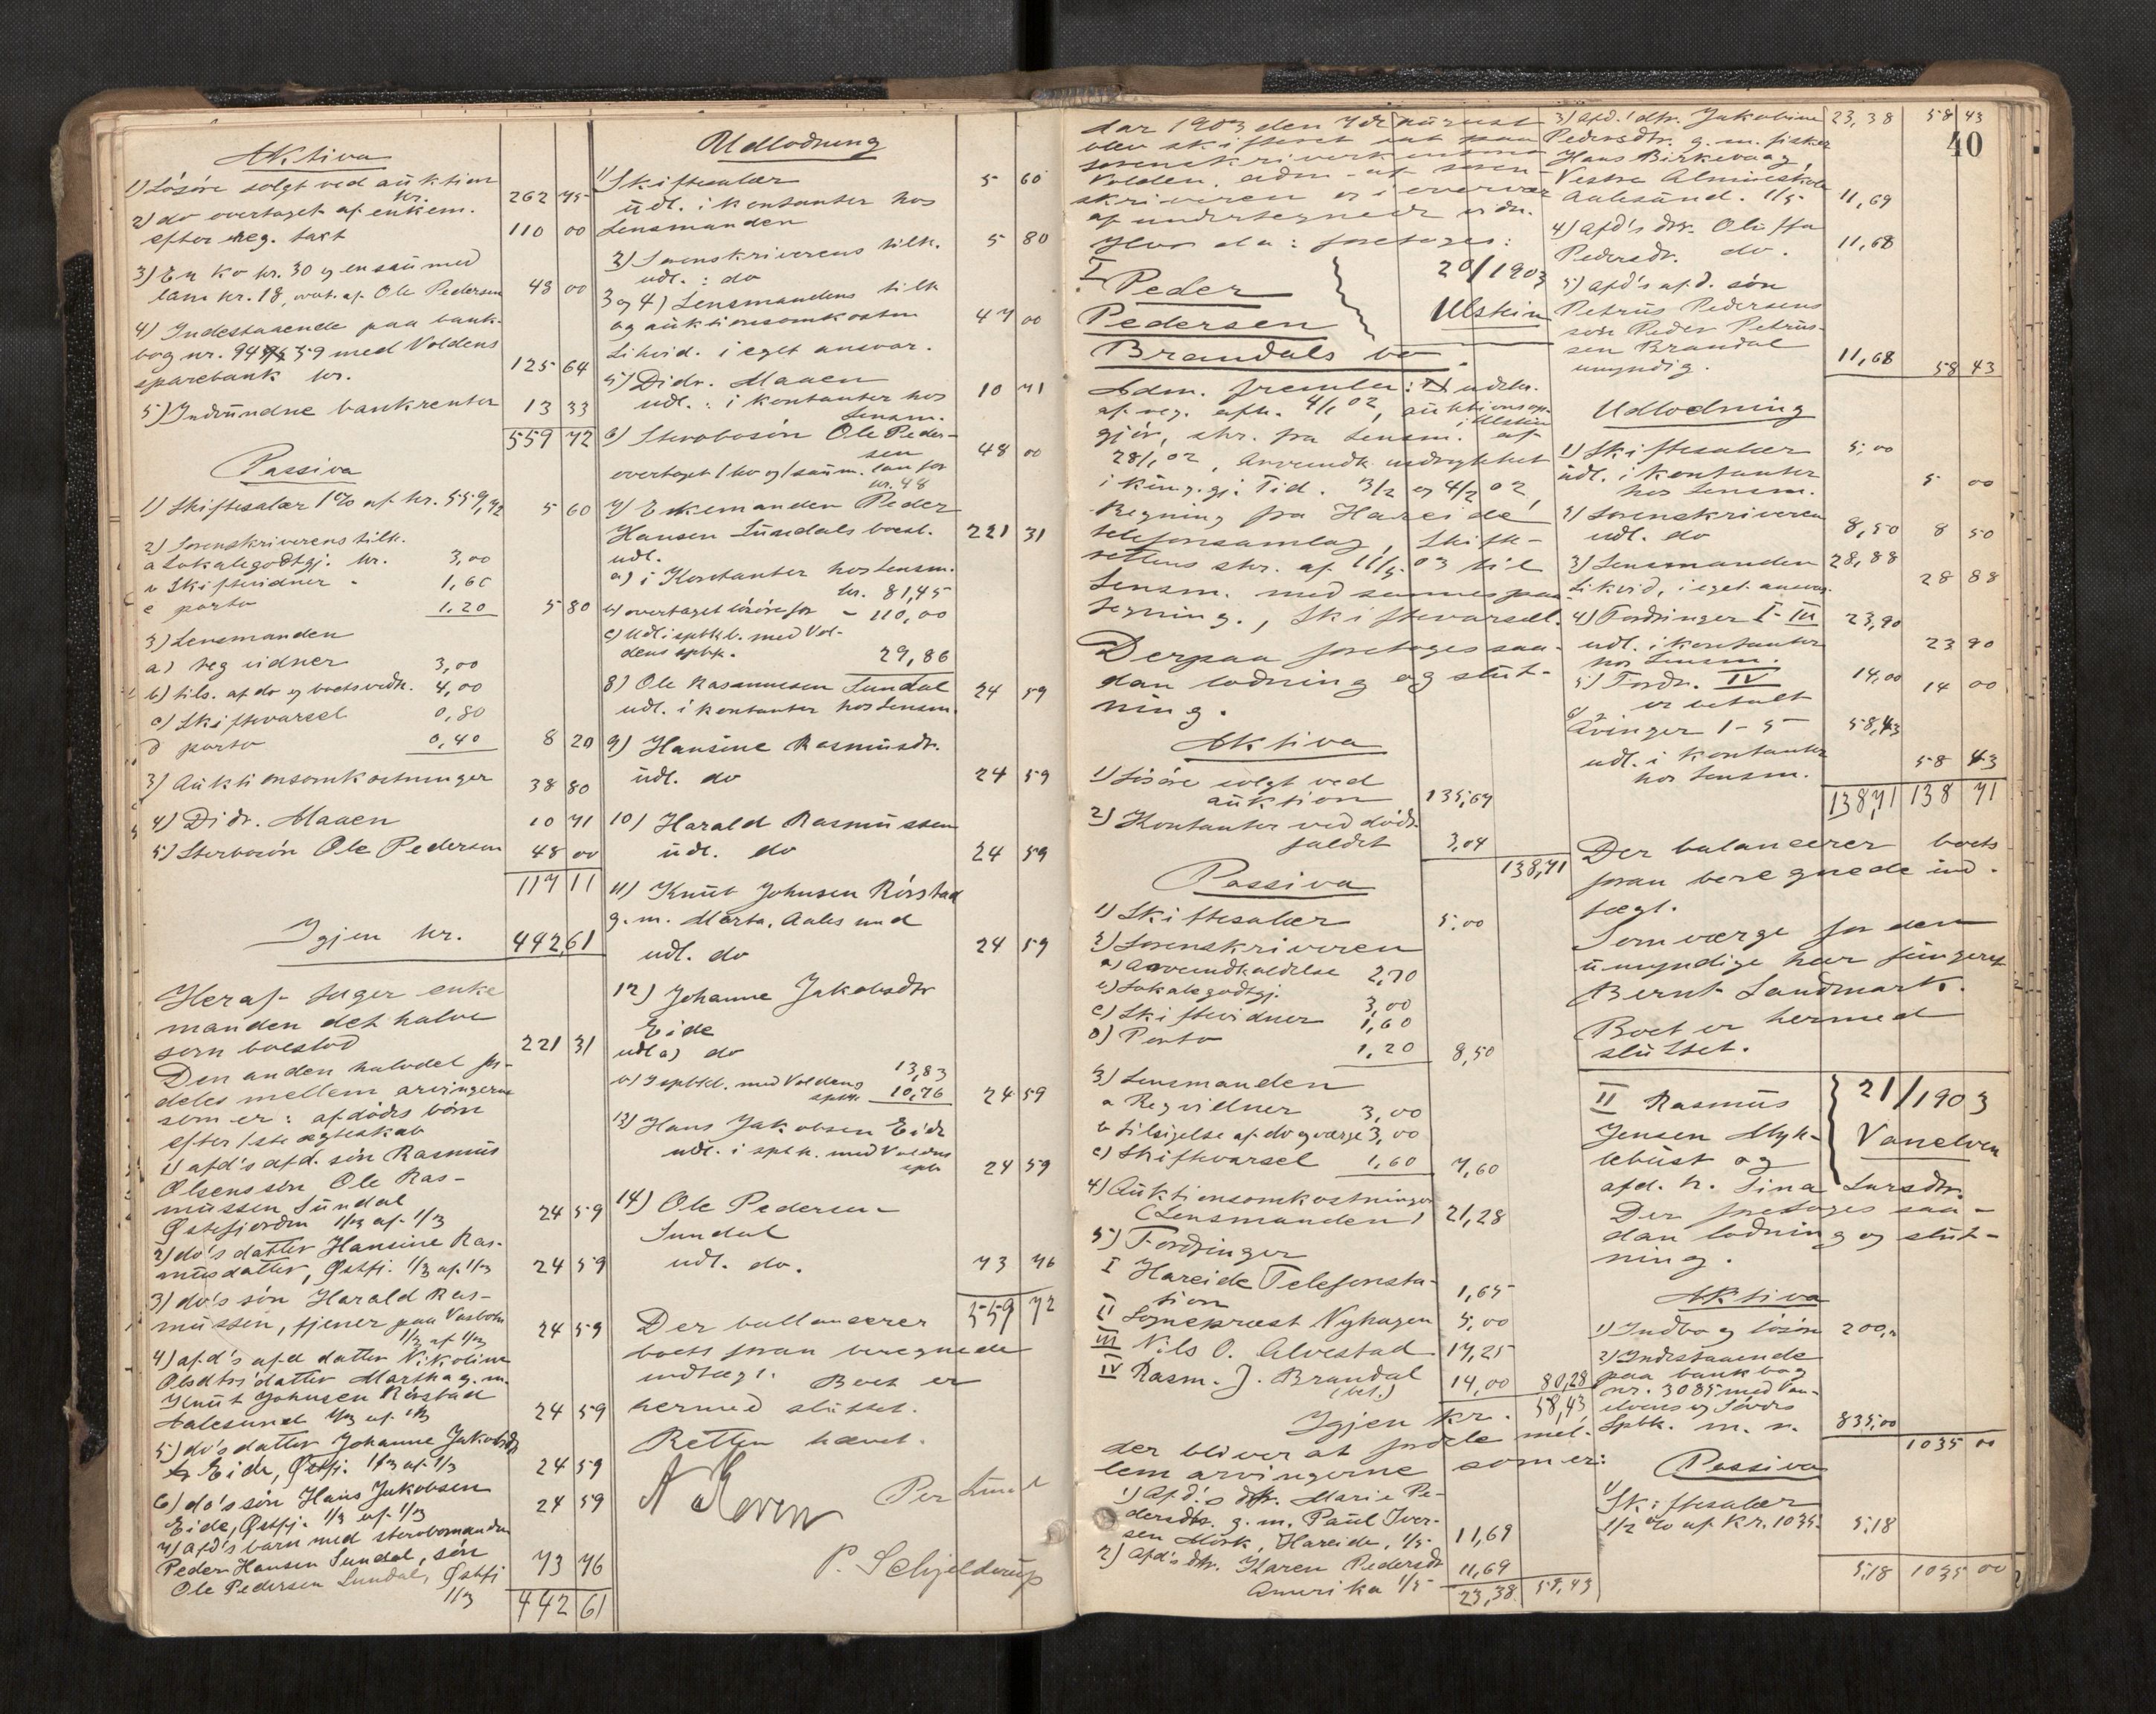 Aktiva
1) Lösöre solgt ved auktion
kr. 262 75
2) do overtaget af enkem.
efter reg. takt 110 00
3) En ko kr. 30 og en sau med
lam kr. 18, overt. af Ole Pedersen 48 00
4) Indestaaende paa bank-
bog nr. 9459 med Voldens
sparebank kr. 125 64
5) Indvundne bankrenter 13 33
559 72
Passiva
1) Skiftesalær 1% af kr. 559,72 5 60
2) Sorenskriverens tilk.
a Lokalegodtgj. kr. 3,00
b Skiftevidner - 1,60
c porto 1,20 5 80
3) Lensmanden
a) reg vidner 3,00
b) tils. af do og boetsvedk. 4,00
c) Skiftevarsel 0,80
d porto 0,40 8 20
3) Auktionsomkostninger 38 80
4) Didr. Maaen 10 71
5) Sterbosön Ole Pedersen 48 00
117 11
Igjen kr. 442,61
Heraf tager enke
manden det halve
som boeslod 221 31
Den anden halvdel for-
deles mellem arvingerne
som er: afdödes börn
efter 1ste ægteskab
1) afd's afd. sön Rasmus
Olsens sön Ole Ras-
mussen Sundal
Østefjorden 1/3 af 1/3 24 59
2) do's datter Hansine Ras-
musdatter, Østfj. 1/3 af 1/3 24 59
3) do's sön Harald Ras-
mussen, tjener paa
1/3 af 1/3 24 59
4) afd's afd datter Nikoline
Olsdtrs datter Martha g. m.
Knut Johnsen Rörstad
Aalesund 1/3 af 1/3 24 59
5) do's datter Johanne Jakobsdtr
Eide, Østfj. 1/3 af 1/3 24 59
6) do's sön Hans Jakobsen
Eide, Østfj. 1/3 af 1/3 24 59
7) afd's barn med sterbomanden
Peder Hansen Sundal, sön
Ole Pedersen Sundal, Østfj
1/3 73 76
442 61
Udlodning
1) Skiftesalær 5 60
udl. i kontanter hos
Lensmanden
2) Sorenskriverens tilk. 5 80
udl. : do
3 og 4) Lensmandens tilk
og auktionsomkostn 47 00
Likvid. i eget ansvar.
5) Didr. Maaen 10 71
udl. : i kontanter hos
Lensm.
6) Sterbosön Ole Peder-
sen 48 00
overtaget 1 ko og 1 sau m. lam for
kr. 48
7) Enkemanden Peder
Hansen Sundals boesl. 221 31
udl.
a) i Kontanter hos Lensm.
kr. 81,45
b) overtaget lösöre for - 110,00
c) Udl i spbkb. med Vol-
dens spbk. 29,86
8) Ole Rasmussen Sundal 24 59
udl. i kontanter hos Lensm.
9) Hansine Rasmusdr.
udl. do 24 59
10) Harald Rasmussen
udl. do 24 59
11) Knut Johnsen Rörstad
g. m. Marta, Aalesund
udl. do 24 59
12) Johanne Jakobsdtr
Eide
udl a) do 13,83
b) I spbkb. med Voldens
spbk. 10,76 24 59
13) Hans Jakobsen Eide
udl. i spbk. med Voldens
spbk 24 59
14) Ole Pedersen
Sundal
udl. do. 73 76
559 72
Der ballancerer
boets foran beregnede
indtægt. Boet er
hermed sluttet.
Retten hævet.
P. Schjelderup
40
Aar 1903 den 7de august
blev skifteret sat paa
sorenskriverkontoret
Volden, adm. af soren-
skriveren og i overvær
af undertegnede vidn.
Hvor da: foretoges:
I Peder
Pedersen
Brandals bo.
20/1903
Ulstein
Adm. fremla: udskr.
af reg. afh. 4/1 02, auktionsop-
gjör, skr. fra Lensm. i Ulstein af
28/1 02, Avvendt indrykket
i kung. gj. Tid. 3/2 og 4/2 02,
Regning fra Hareide
telefonsamlag, Skifte-
rettens skr. af 11/5 03 til
Lensm. med sammes paa-
tegning., Skiftevarsel.
Derpaa foretoges saa-
dan lodning og slut-
ning.
Aktiva
1) Lösöre solgt ved
auktion 135,67
2) Kontanter ved döds-
faldet 3,04
138,71
Passiva
1) Skiftesalær 5,00
2) Sorenskriveren
a) 2,70
b) Lokalegodtgj. 3,00
c) Skiftevidner 1,60
d) Porto 1,20 8,50
3) Lensmanden
a Regvidner 3,00
b tilsigelse af do og værge 3,00
c) Skiftevarsel 1,60 7,60
4) Auktionsomkostninger
(Lensmanden) 21,28
5) Fordringer
I Hareide Telefonsta-
tion 1,65
II Sognepræst Nyhagen 5,00
III Nils O. Alvestad 17,25
IV Rasm. J. Brandal 14,00 80,28
(bet.)
Igjen kr. 58,43
der bliver at fordele mel-
lem arvingerne som er:
1) Afd's dtr. Marie Pe-
dersdtr. g. m. Paul Iver-
sen Mork, Hareide, 1/5 11,69
2) Afd's dtr. Karen Pedersdtr
Amerika 1/5 11,69
23,38 58,43
3) Afd. s dtr. Jakobine 23,38 58 43
Pedersdtr. g. m. fisker
Hans Birkevaag,
Vestre Almueskole
Aalesund. 1/5 11,69
4) afd's dtr. Oluffa
Pedersdtr. do. 11,68
5) afd's afd. sön
Petrus Pedersens
sön Peder Petrus-
sen Brandal
umyndig. 11,68 58 43
Udlodning
1) Skiftesalær 5,00
udl. i kontanter
hos Lensm. 5 00
2) Sorenskriveren
udl. do 8,50 8 50
3) Lensmanden 28,88
Likvid, i eget ansvar. 28 88
4) Fordringer I-III 23,90
udl. i kontanter
hos Lensm. 23 90
5) Fordr. IV 14,00
er betalt 14 00
6) Arvinger 1-5 58,43
udl. i kontanter
hos Lensm. 58 43
138,71 138 71
Der balancerer boets
foran beregnede ind-
tægt.
Som værge for den
umyndige har fungeret
Bernt Landmark.
Boet er hermed
sluttet.
II Rasmus
Jensen Myk-
lebust og
afd. h. Sina Larsdtr.
21/1903
Vanelven
Der foretoges saa-
dan lodning og slut-
ning.
Aktiva
1) Indbo og lösöre 200,
2) Indestaaende
paa bankbog
nr. 3085 med Van-
elvens og
Spbk. m. r. 835,00
1035 00
Passiva
1) Skiftesalær
1/2 % af Kr. 1035 5,18
5,18 1035 00